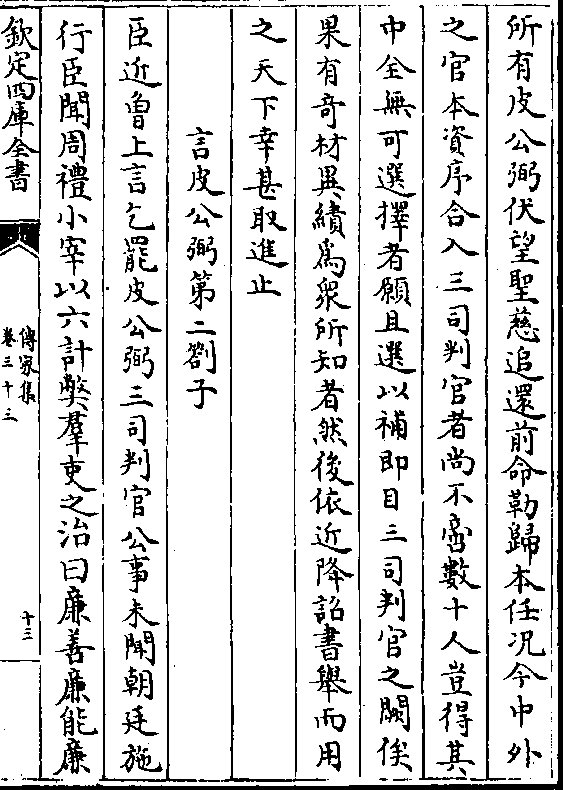 所有皮公弼伏望聖慈追還前命勒歸本任况今中外
之官本資序合入三司判官者尚不啻數十人豈得其
中全無可選擇者願且選以補即目三司判官之闕俟
果有奇材異績為衆所知者然後依近降詔書舉而用
之天下幸甚取進止
言皮公弼第二劄子
臣近曾上言乞罷皮公弼三司判官公事未聞朝廷施
行臣聞周禮小宰以六計弊羣吏之治曰廉善廉能廉
欽定四庫全書
傳家集
卷三十三
十三